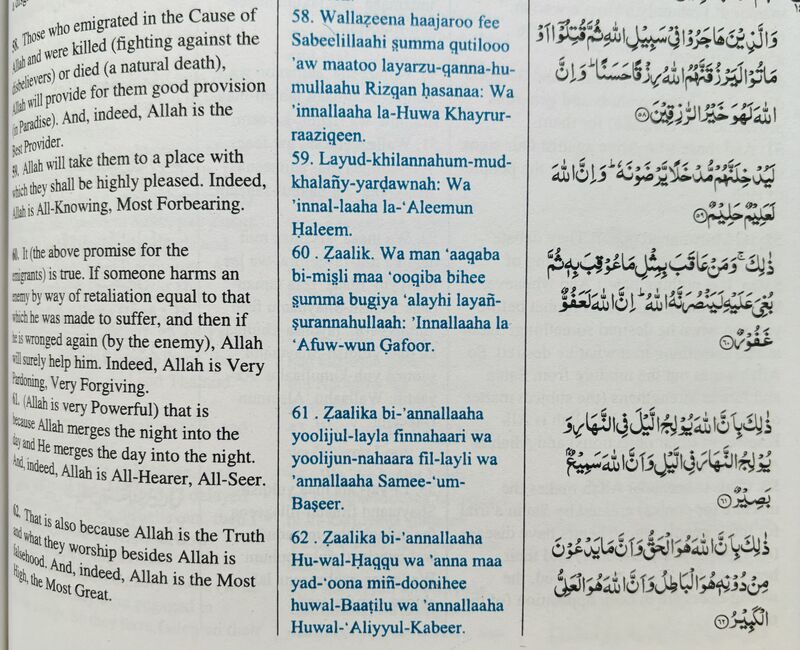 58. Those who emigrated in the Cause of
Allah and were killed (fighting against the
disbelievers) or died (a natural death),
Allah will provide for them good provision
(in Paradise). And, indeed, Allah is the
Best Provider.
59. Allah will take them to a place with
which they shall be highly pleased. Indeed,
Allah is All-Knowing, Most Forbearing.
60. It (the above promise for the
emigrants) is true. If someone harms an
enemy by way of retaliation equal to that
which he was made to suffer, and then if
he is wronged again (by the enemy), Allah
will surely help him. Indeed, Allah is Very
Pardoning, Very Forgiving.
61. (Allah is very Powerful) that is
because Allah merges the night into the
day and He merges the day into the night.
And, indeed, Allah is All-Hearer, All-Seer.
62. That is also because Allah is the Truth
and what they worship besides Allah is
falsehood. And, indeed, Allah is the Most
High, the Most Great.
58. Wallaẓeena haajaroo fee
Sabeelillaahi ṣumma qutilooo
'aw maatoo layarzu-qanna-hu-
mullaahu Rizqan ḥasanaa: Wa
'innallaaha la-Huwa Khayrur-
raaziqeen.
59. Layud-khilannahum-mud-
khalañy-yarḍawnah: Wa
'innal-laaha la-‘Aleemun
Ḥaleem.
60 . Ẓaalik. Wa man ‘aaqaba
bi-miṣli maa ‘ooqiba bihee
ṣumma bugiya ‘alayhi layañ-
ṣurannahullaah: 'Innallaaha la
‘Afuw-wun Ġafoor.
61 . Ẓaalika bi-'annallaaha
yoolijul-layla finnahaari wa
yoolijun-nahaara fil-layli wa
'annallaaha Samee-‘um-
Baṣeer.
62 . Ẓaalika bi-'annallaaha
Hu-wal-Ḥaqqu wa 'anna maa
yad-‘oona miñ-doonihee
huwal-Baaṭilu wa 'annallaaha
Huwal-‘Aliyyul-Kabeer.
وَالَّذِيْنَ هَاجَرُوْا فِيْ سَبِيْلِ اللهِ ثُمَّ قُتِلُوْٓا اَوْ
مَاتُوْا لَيَرْزُقَنَّهُمُ اللهُ رِزْقًا حَسَنًا ؕ وَاِنَّ
اللهَ لَهُوَ خَيْرُ الرّٰزِقِيْنَ ۝۵۸
لَيُدْخِلَنَّهُمْ مُّدْخَلًا يَّرْضَوْنَهٗ ؕ وَاِنَّ اللهَ
لَعَلِيْمٌ حَلِيْمٌ ۝۵۹
ذٰلِكَ ۚ وَمَنْ عَاقَبَ بِمِثْلِ مَا عُوْقِبَ بِهٖ ثُمَّ
بُغِيَ عَلَيْهِ لَيَنْصُرَنَّهُ اللهُ ؕ اِنَّ اللهَ لَعَفُوٌّ
غَفُوْرٌ ۝۶۰
ذٰلِكَ بِاَنَّ اللهَ يُوْلِجُ الَّيْلَ فِي النَّهَارِ وَ
يُوْلِجُ النَّهَارَ فِي الَّيْلِ وَاَنَّ اللهَ سَمِيْعٌۢ
بَصِيْرٌ ۝۶۱
ذٰلِكَ بِاَنَّ اللهَ هُوَ الْحَقُّ وَاَنَّ مَا يَدْعُوْنَ
مِنْ دُوْنِهٖ هُوَ الْبَاطِلُ وَاَنَّ اللهَ هُوَ الْعَلِيُّ
الْكَبِيْرُ ۝۶۲